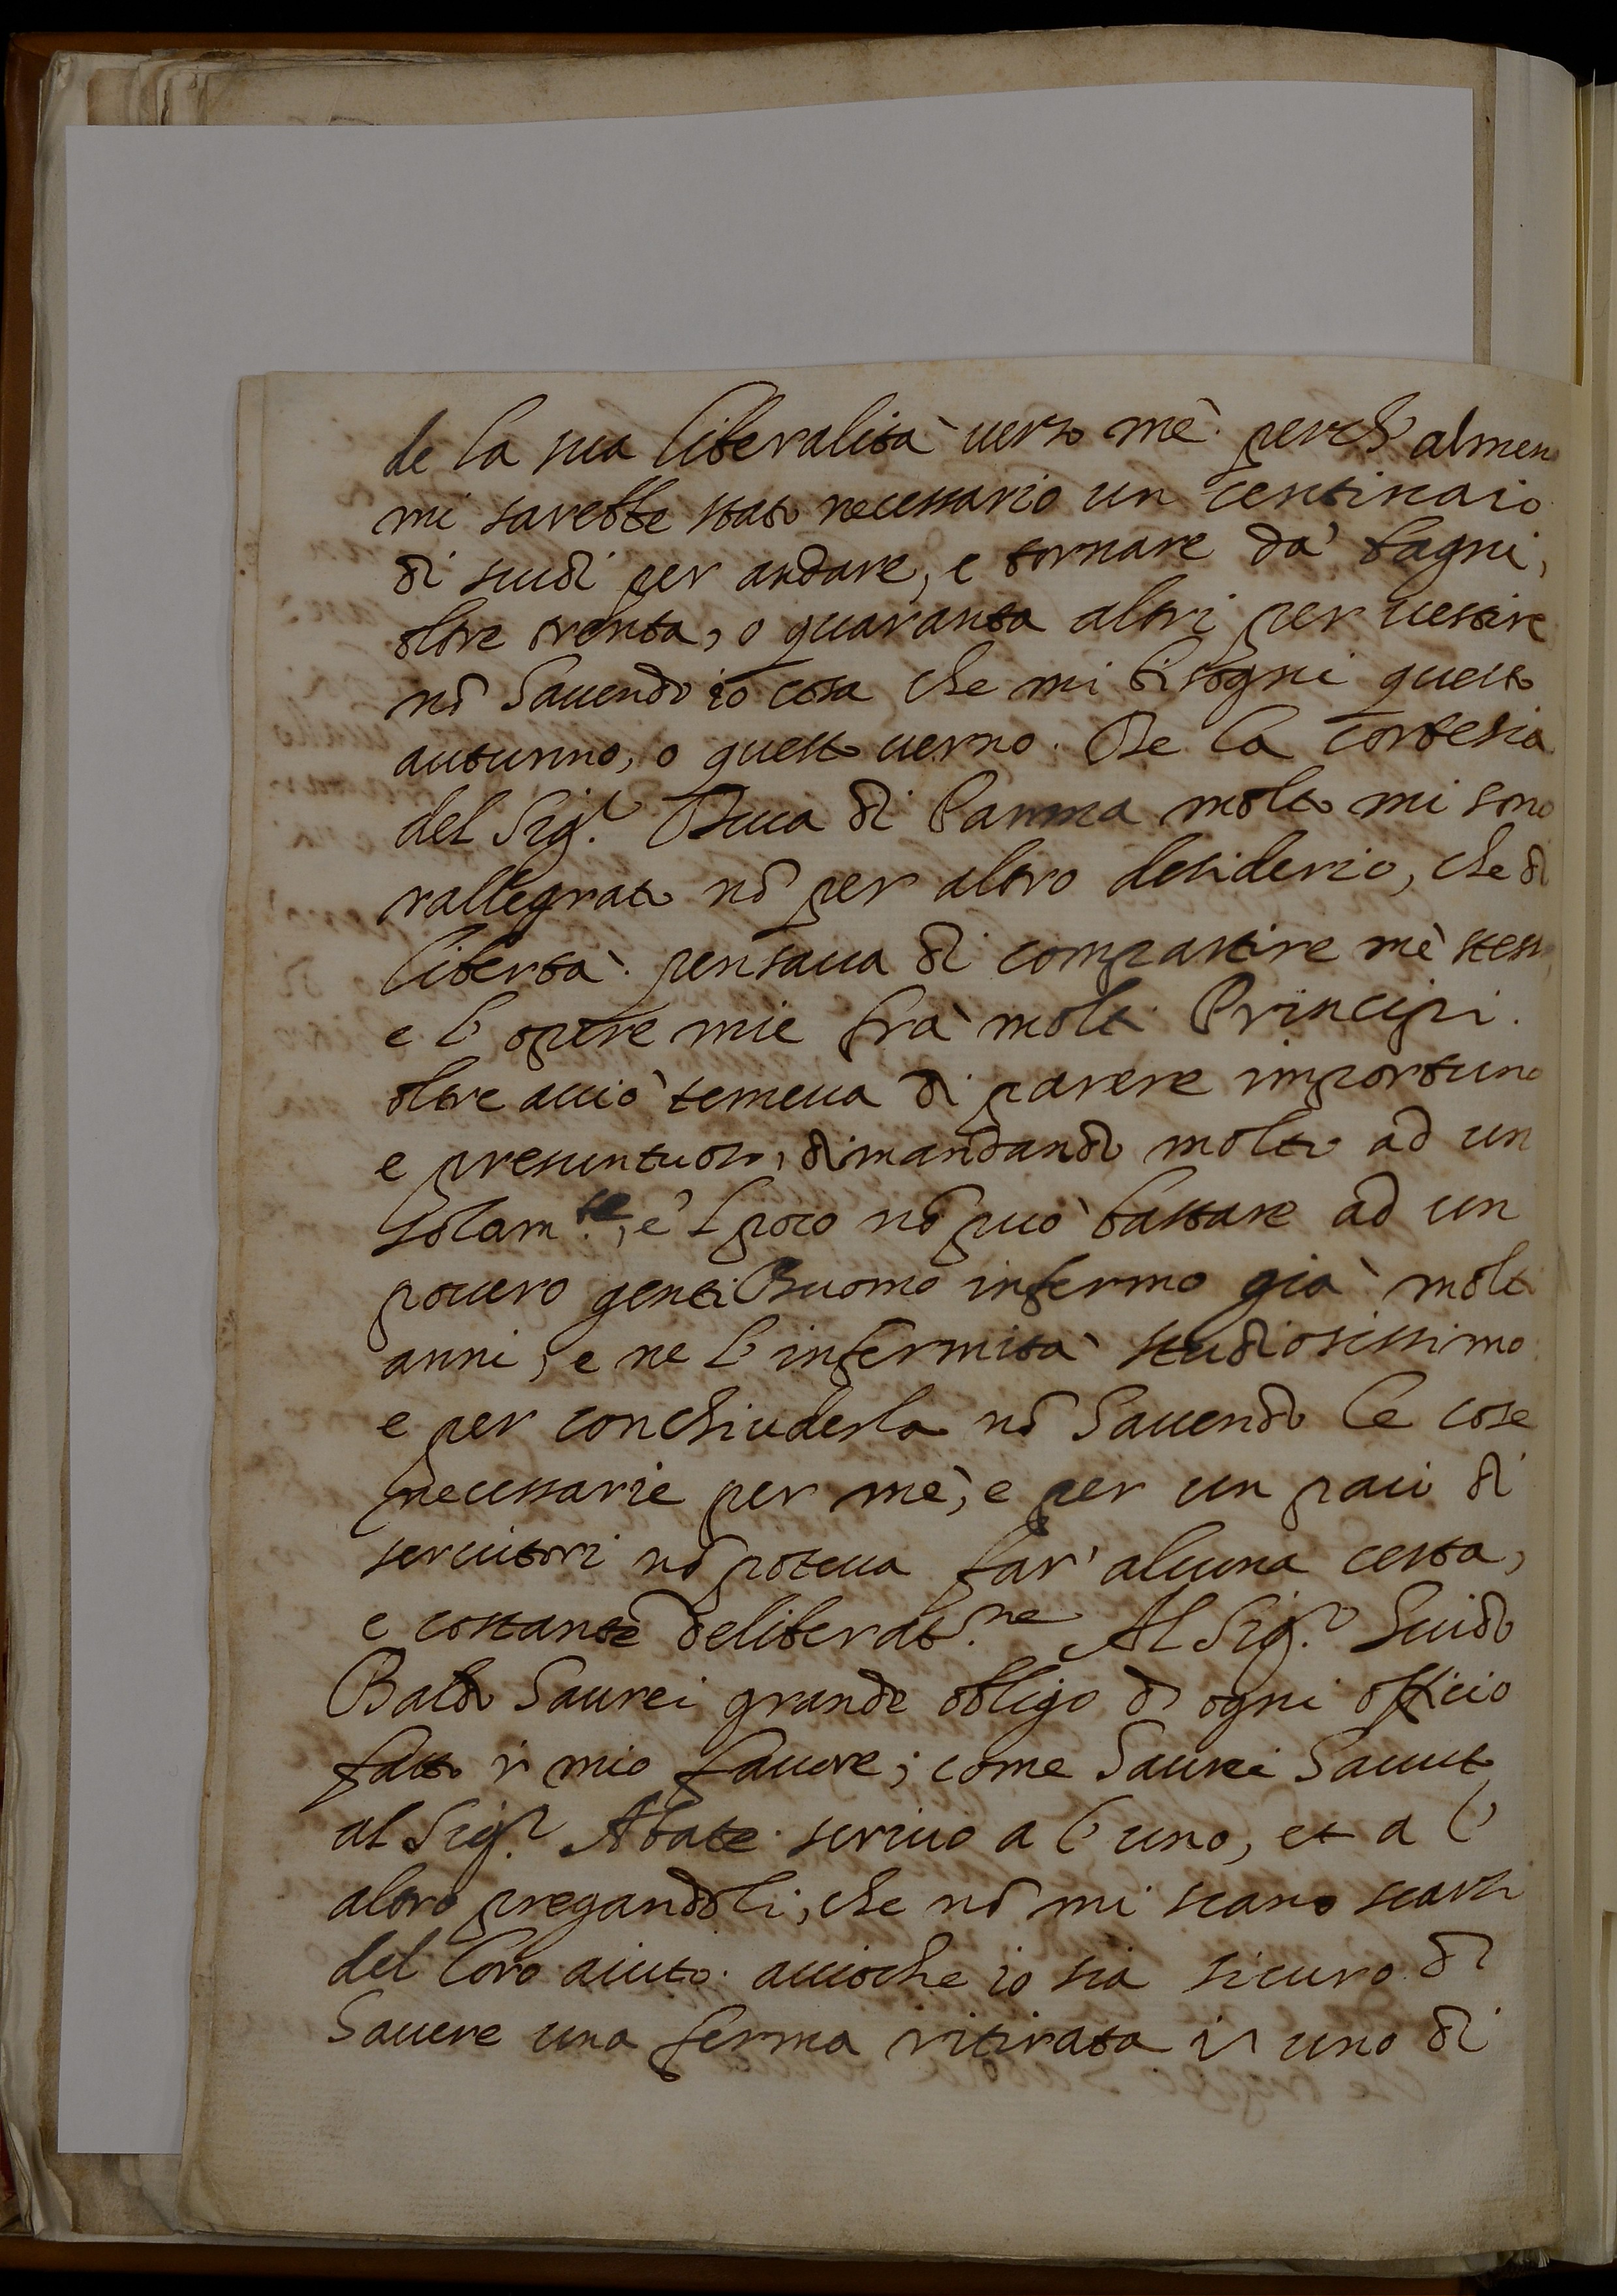 de la sua liberalità verso mè. perch' almen
mi sarebbe stato necessario un centinaio
di scudi per andare, e tornare da' bagni,
oltre trenta, o quaranta altri per vestire
nõ havendo io cosa che mi bisogni questo
autunno, o questo verno. De la cortesia
del Sig.r Duca di Parma molto mi sono
rallegrato nõ per altro desiderio, che di
libertà. pensava di compartire mè stesso
e l' opere mie frà molti Principi.
oltre acciò temeva di parere importuno
e presuntuoso, dimandando molto ad un
solam.te, e 'l poco nõ può bastare ad un
povero gentilhuomo infermo già molti
anni, e ne l' infermità studiosissimo
e per conchiuderla nõ havendo le cose
necessarie per mè, e per un paio di
servitori nõ poteva far' alcuna certa,
e costante deliberat.ne Al Sig.r Guido
Baldo haurei grande obligo d' ogni officio
fatto ĩ mio favore; come haurei havuto
al Sig.r Abate. scrivo a l' uno, et a l'
altro pregandoli, che nõ mi sieano scarsi
del loro aiuto. accioche io sia sicuro di
havere una ferma ritirata in uno di